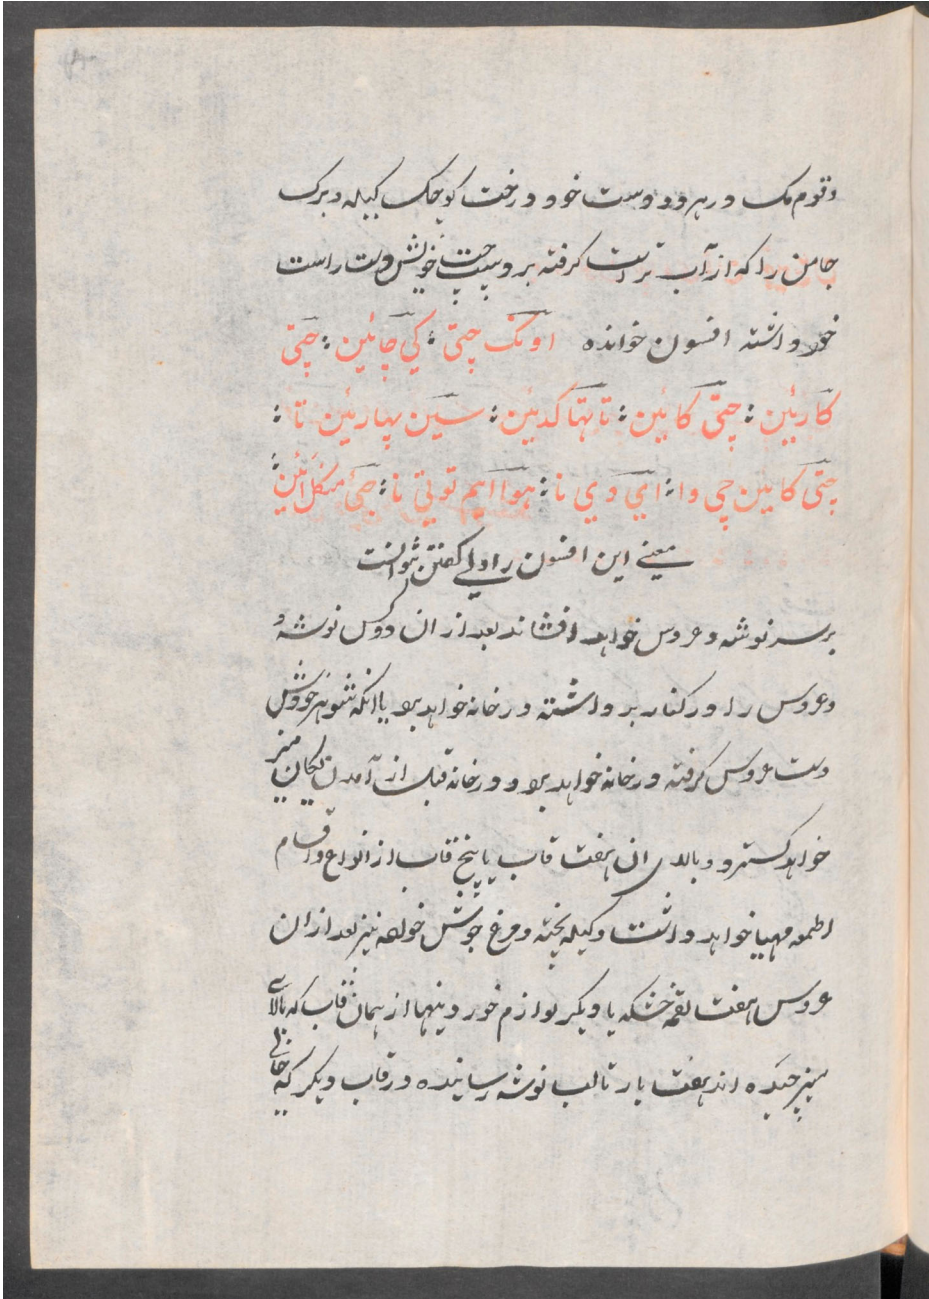 وقوم مک در هر دو دست خود درخت کوچک کیله و برک
جامن را که از آب تر است کرفته بر دست چپ خویش دست راست
خود داشته افسون خوانده اونک چتی ؛ کی چائین ؛ چتی
کارئین ؛ چتی کائین ؛ تا تهاکدئین ؛ سین پهارئین تا ؛
چتی کائین چی وا ؛ ایی وی نا ؛ هوا ایم توتی نا ؛ جی منکل ائین ؛
معنی این افسون راولی کفتن نتوانست
بر سر نوشه و عروس خواهد افشاند بعد از ان دوکس نوشه و
وعروس را در کنار برداشته در خانه خواهد برد یا انکه شوهر خودش
دست عروس کرفته در خانه خواهد برد و در خانه قبل از آمدن میز
خواهد کسترد و بالای ان هفت قاب یا پنج قاب از انواع و اقسام
اطمعه مهیا خواهد داشت و کیله پخته و مرغ جوش خواهد نیز بعد از ان
عروس هفت لقمه خشکه با دیکر لوازم خوردینها از همان قاب که بالای
میز چیده اند هفت بار تا لب نوشه رسانیده در قاب دیکر که خالی